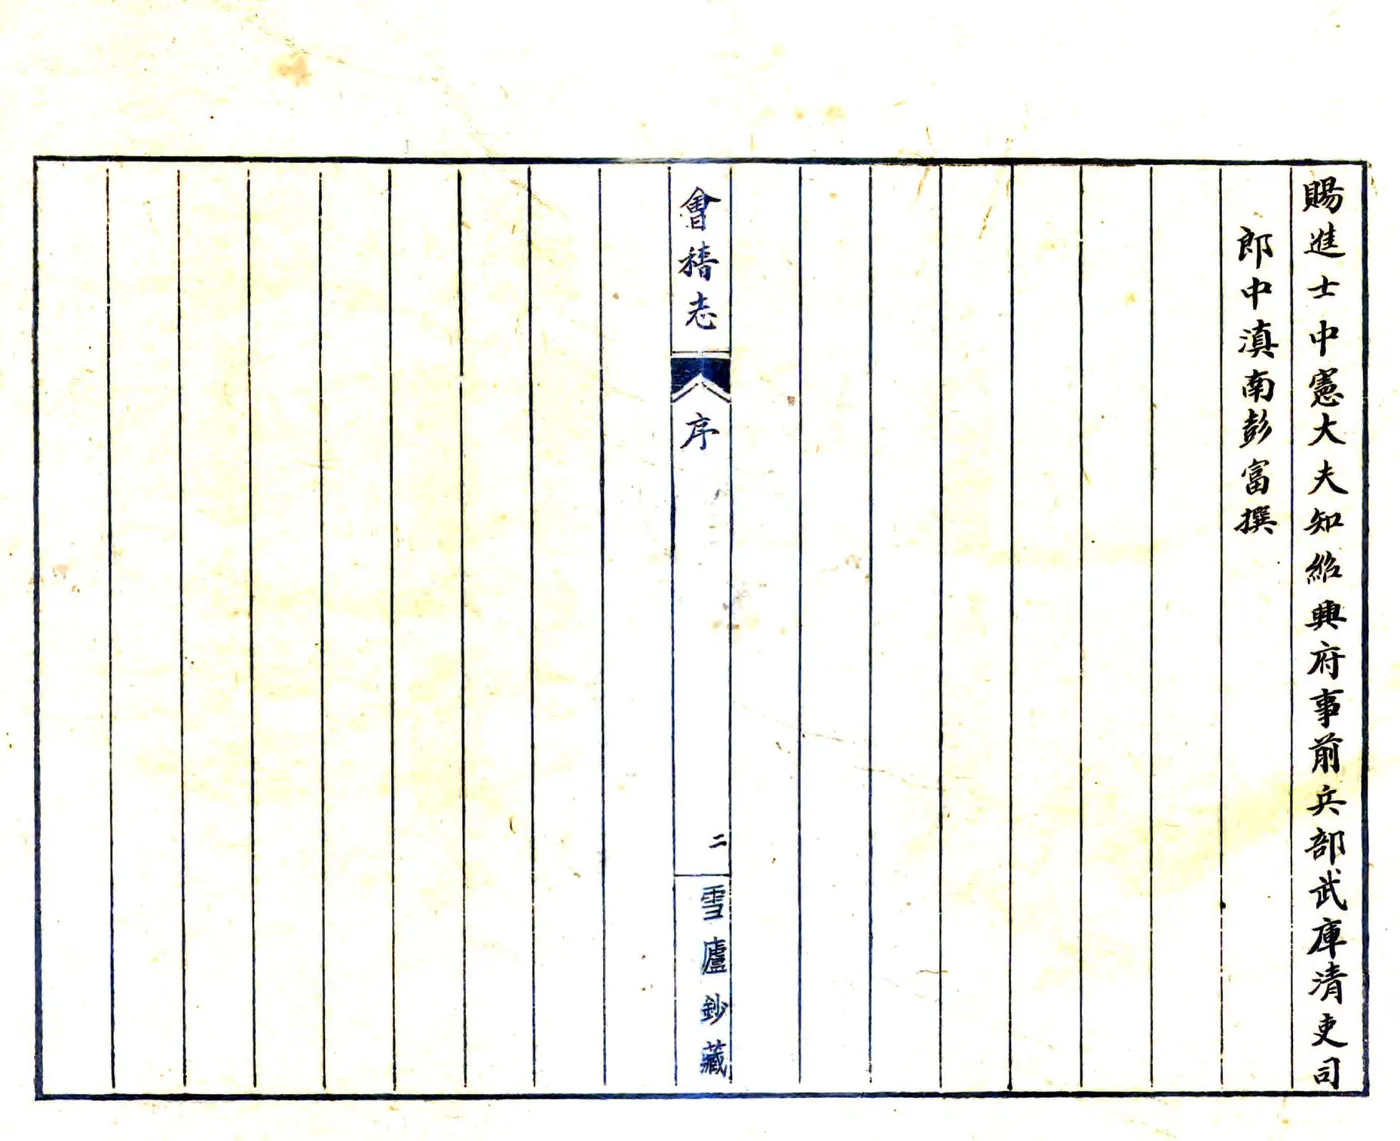 賜進士中憲大夫知紹興府事前兵部武庫清吏司
郎中滇南彭富撰
會稽志
序
二
雪廬鈔藏